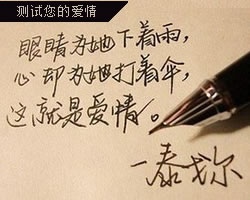 测试您的爱情
眼睛为她下着雨，
心却为她打着伞，
这就是爱情。
一泰戈尔